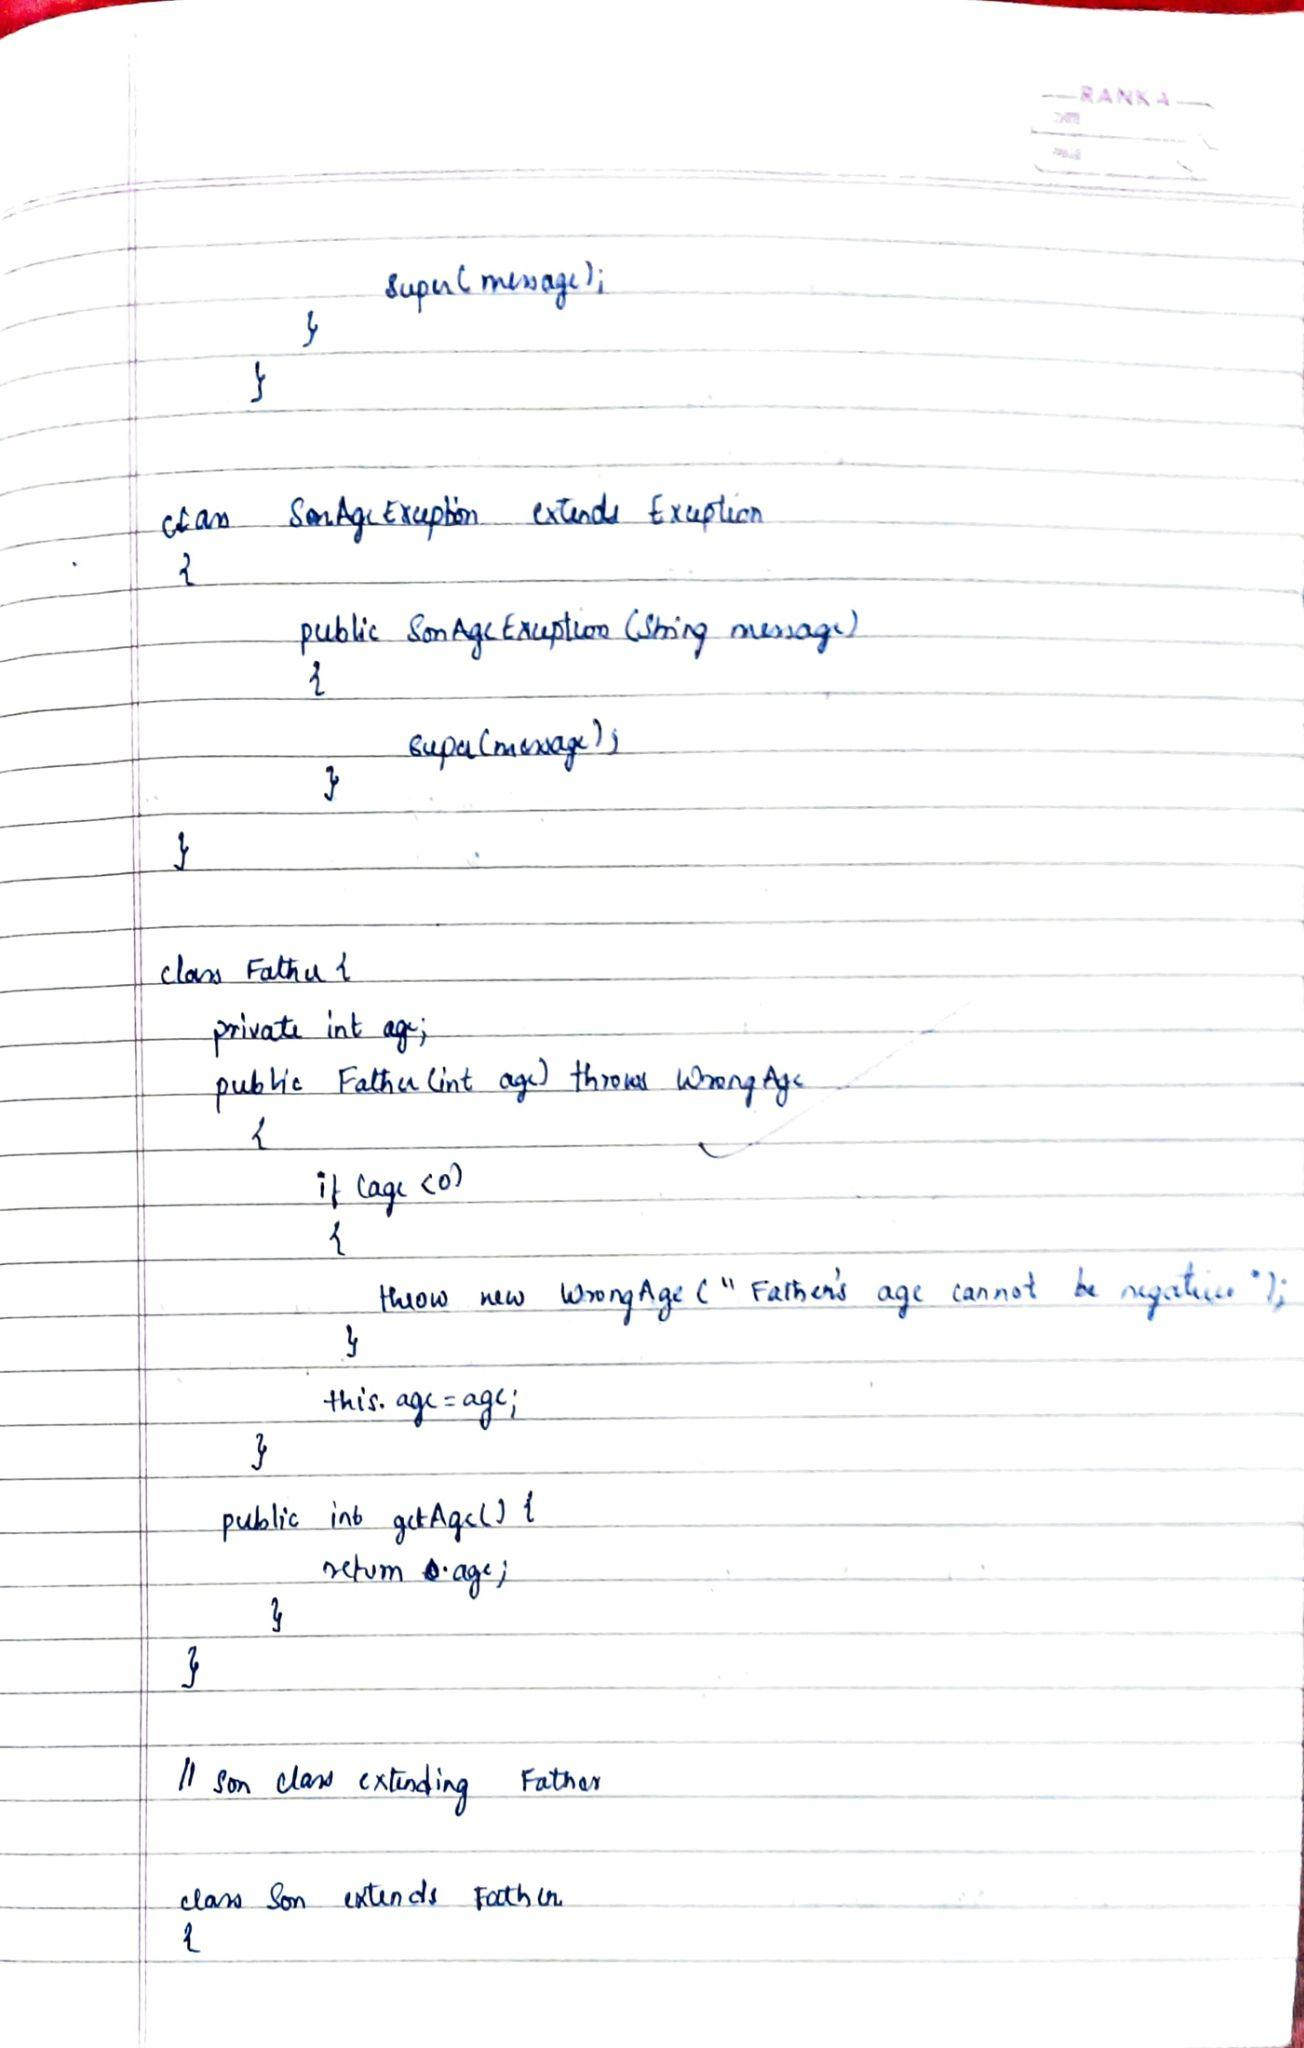 RANKA
super(message);
}
}
class SonAgeException extends Exception
{
public SonAgeException (String message)
{
super(message);
}
}
class Father {
private int age;
public Father (int age) throws WrongAge
{
if (age <0)
{
throw new WrongAge (" Father's age cannot be negative ");
}
this. age = age;
}
public int getAge() {
return age;
}
}
// Son class extending Father
class Son extends Father
{